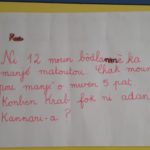 Ni 12 moun bòdlanmè ka
manjé matoutou. Chak moun
jini manjé'o mwen 5 pat.
Konben Krab fok ni adan
Kannari-a ?